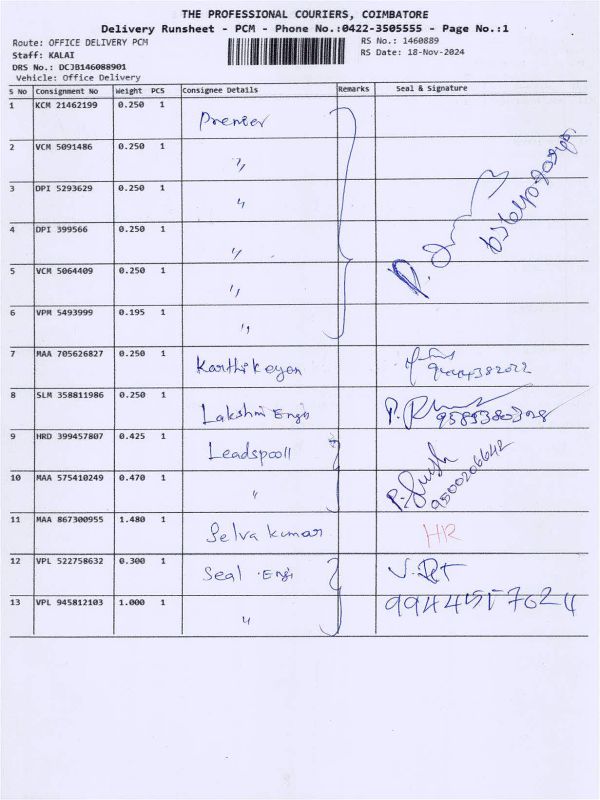 THE PROFESSIONAL COURIERS, COIMBATORE
Delivery Runsheet - PCM - Phone No.:0422-3505555 - Page No.:1
Route: OFFICE DELIVERY PCM
RS No.: 1460889
Staff: KALAI
RS Date: 18-Nov-2024
DRS No.: DCJB146088901
Vehicle: Office Delivery
S No Consignment No Weight PCS Consignee Details Remarks Seal & Signature
1 KCM 21462199 0.250 1 Premier
2 VCM 5091486 0.250 1 "
3 DPI 5293629 0.250 1 "
4 DPI 399566 0.250 1 "
5 VCM 5064409 0.250 1 "
6 VPM 5493999 0.195 1 "
7 MAA 705626827 0.250 1 Karthikeyan 9444382022
8 SLM 358811986 0.250 1 Lakshmi Engi
9 HRD 399457807 0.425 1 Leadspooll
10 MAA 575410249 0.470 1 " 9500206642
11 MAA 867300955 1.480 1 Selva kumar HR
12 VPL 522758632 0.300 1 Seal Engi
13 VPL 945812103 1.000 1 "